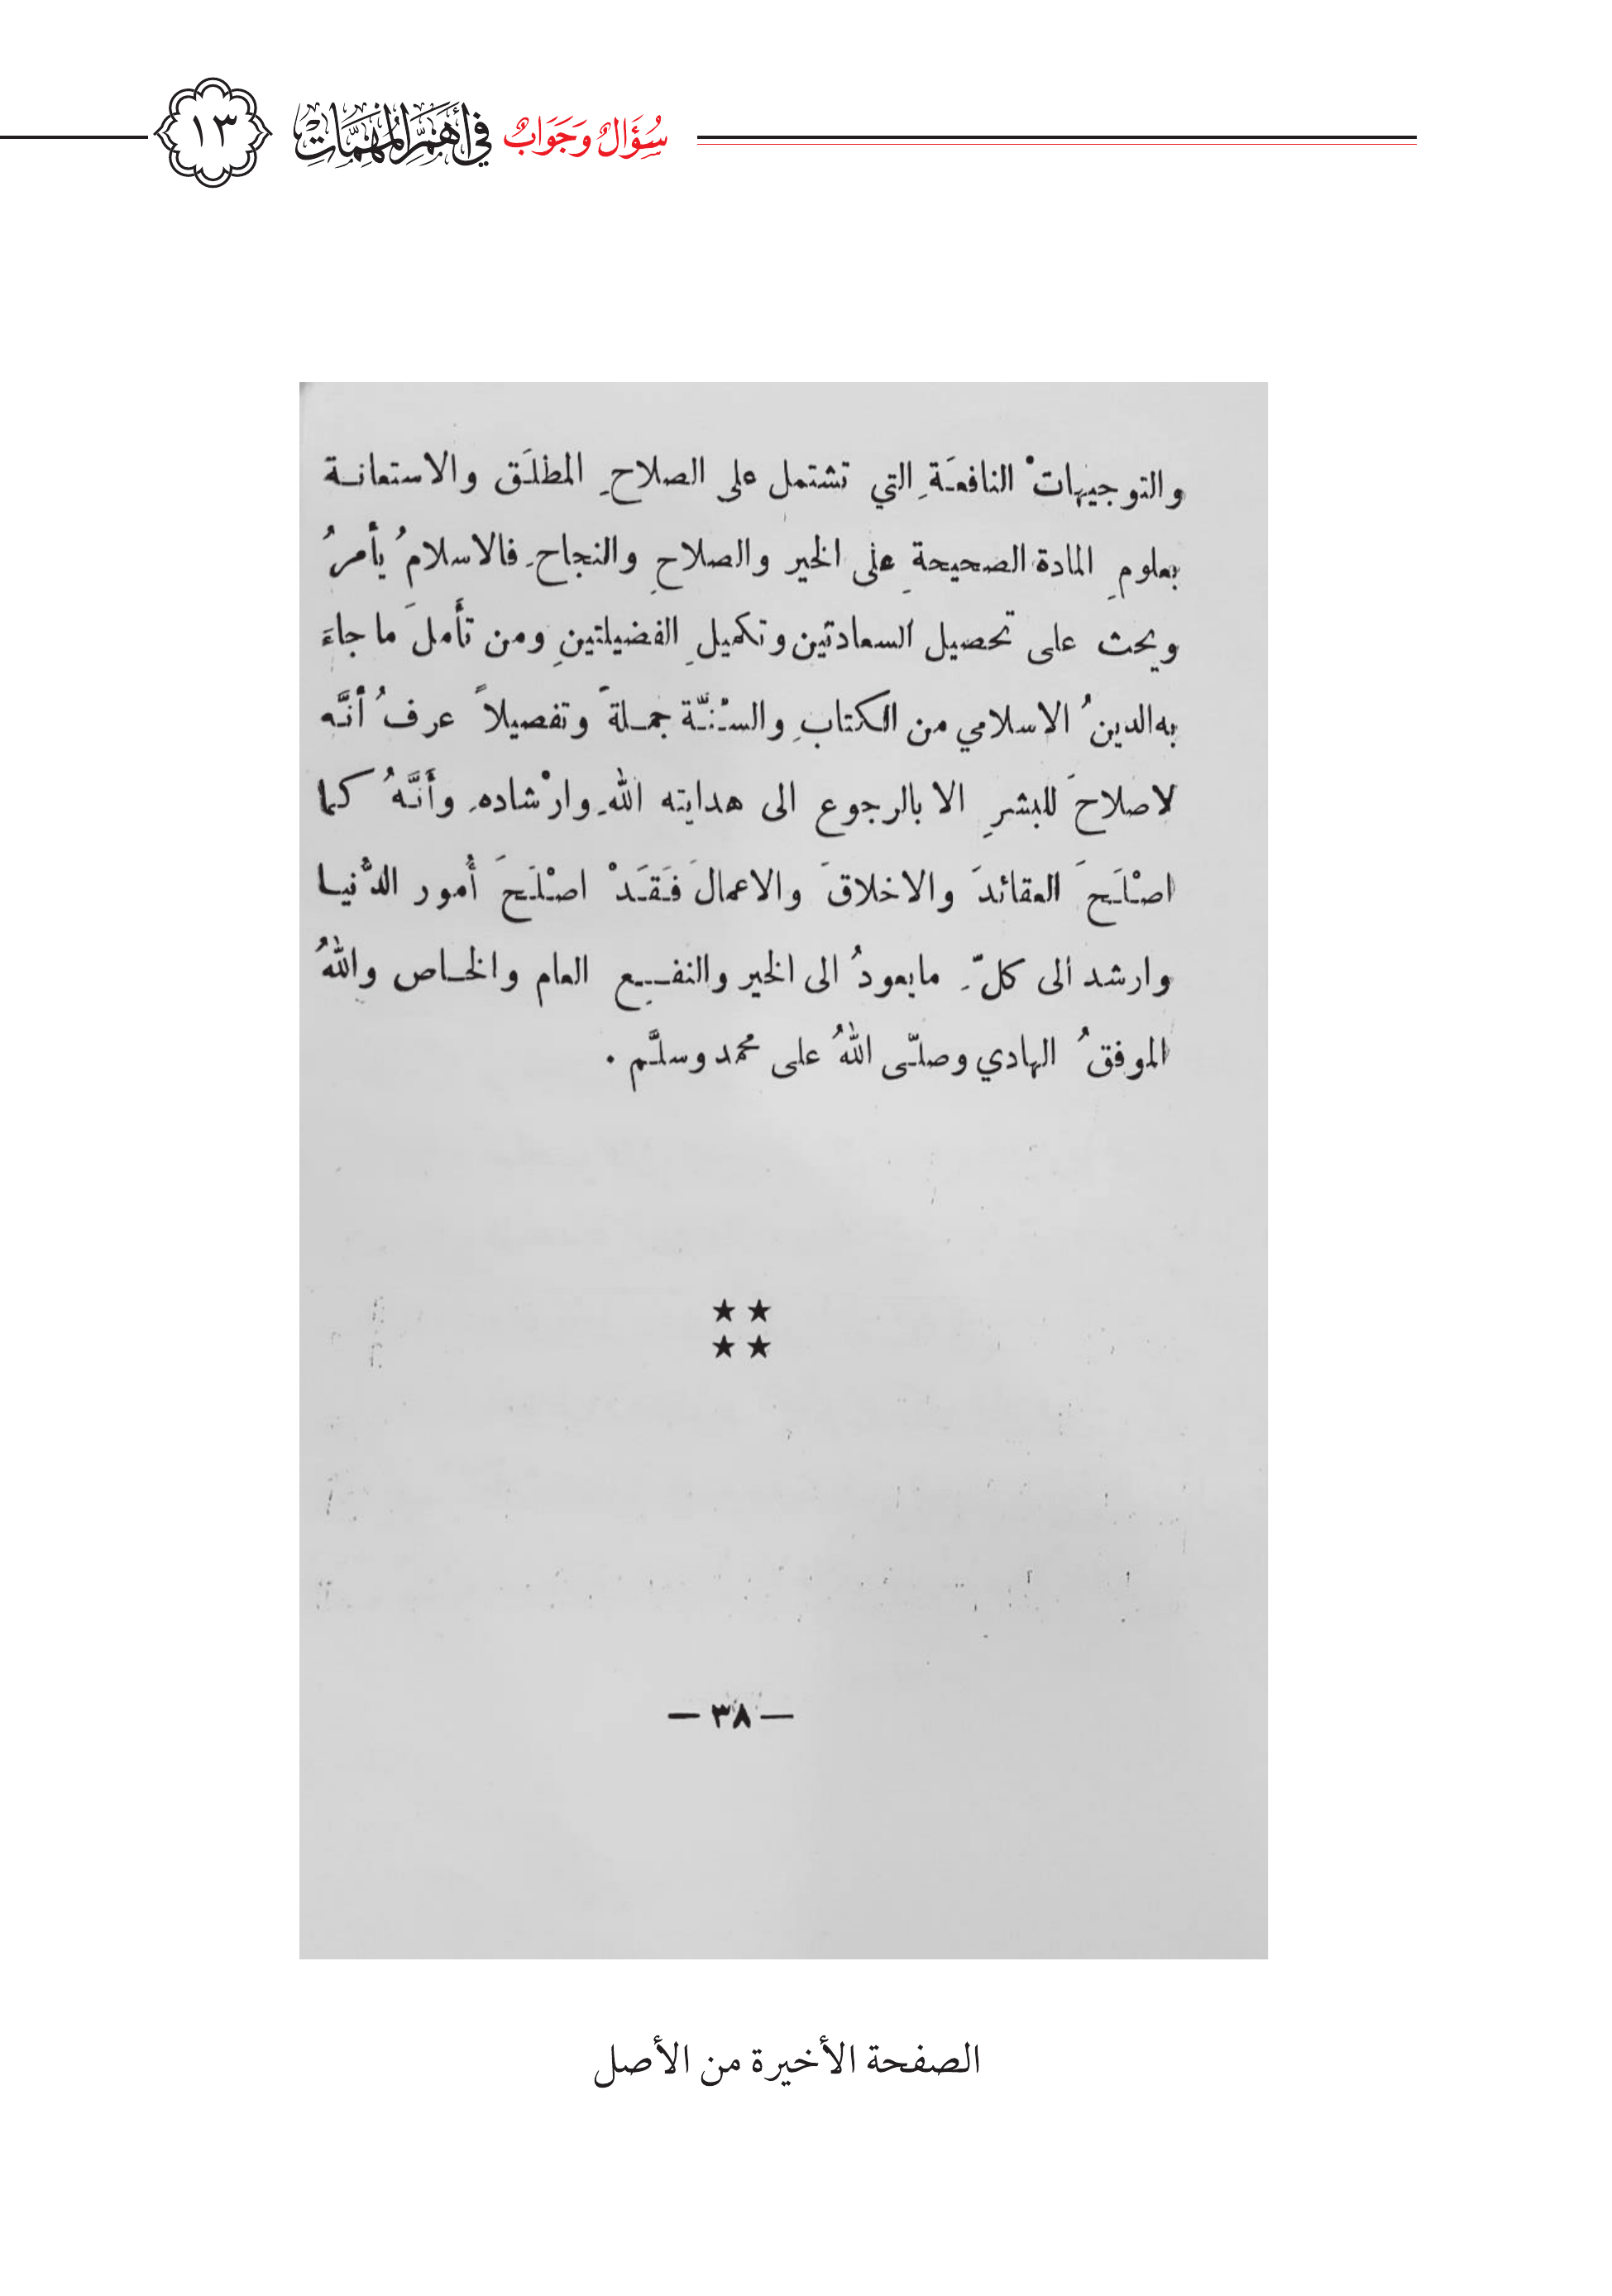 سُؤَالٌ وَجَوَابٌ في أَهَمِّ المُهِمَّاتِ ١٣
والتوجيهاتْ النافعَةِ التي تشتمل على الصلاحِ المطلَق والاستعانة
بعلومِ المادة الصحيحةِ على الخير والصلاحِ والنجاحِ فالاسلامُ يأمرُ
ويحث على تحصيل السعادتين وتكميلِ الفضيلتينِ ومن تأملَ ما جاءَ
به الدينُ الاسلامي من الكتابِ والسُنّة جملةً وتفصيلاً عرفُ أنَّه
لاصلاحَ للبشرِ الا بالرجوع الى هدايته اللهِ وارْشادهِ وأنَّهُ كما
اصْلَحَ العقائدَ والاخلاقَ والاعمالَ فَقَدْ اصْلَحَ أُمور الدُّنيا
وارشد ألى كلِّ مايعودُ الى الخير والنفع العام والخاص واللهُ
الموفقُ الهادي وصلّى اللهُ على محمد وسلَّم .
★ ★
★ ★
— ٣٨ —
الصفحة الأخيرة من الأصل